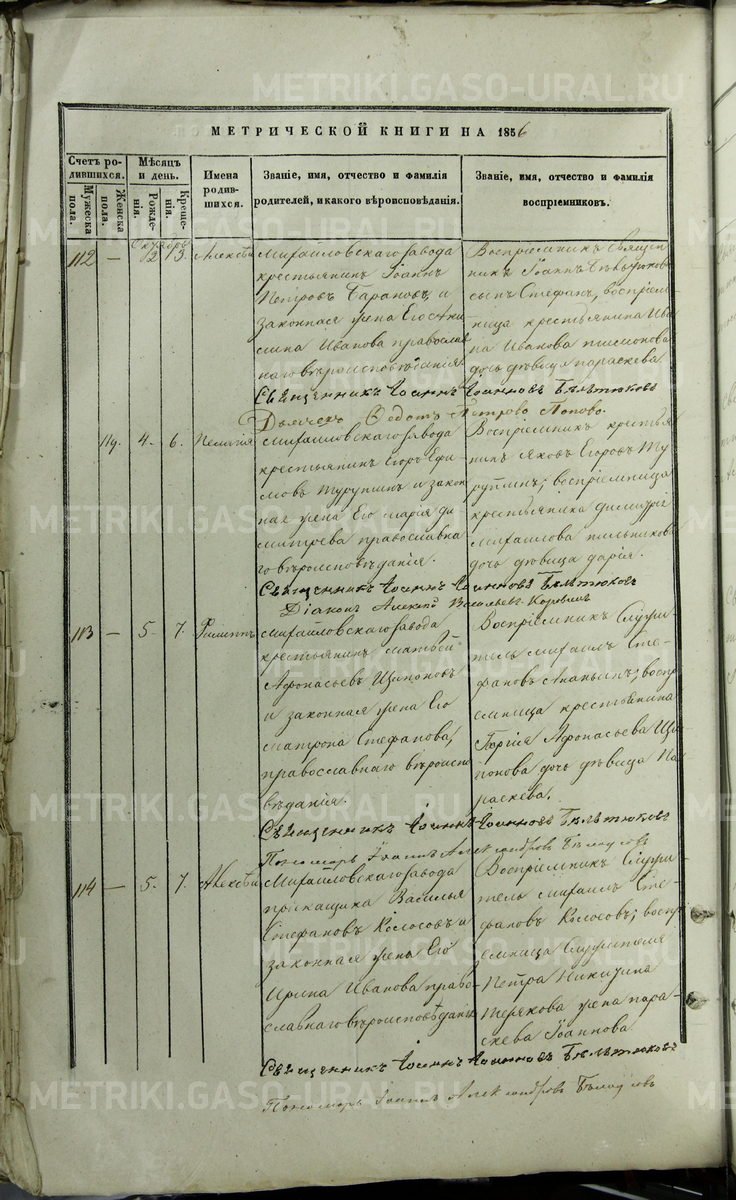 МЕТРИЧЕСКОЙ КНИГИ НА 1856
Счетъ родившихся.
Мужеска пола.
Женска пола.
Мѣсяцъ и день.
Рожденія.
Крещенія.
Имена родившихся.
Званіе, имя, отчество и фамилія родителей, и какого вѣроисповѣданія.
Званіе, имя, отчество и фамилія воспріемниковъ.
Октябрь
112 — 2 3. Алексѣй
Михайловскаго завода
крестьянинъ Іоаннъ
Петровъ Барановъ, и
законная жена Его
Ивановa православ
наго вѣроисповѣданія
Воспріемникъ Священ
никъ Іоаннъ
сынъ Стефанъ, воспріем
ница крестьянина Ива
на Иванова
дочь дѣвица параскева
Священникъ Іоаннъ Іоанновъ Бѣлтюковъ
Дьячекъ Федотъ Петровъ Поповъ.
119. 4. 6. Пелагія
Михайловскаго завода
крестьянинъ Егоръ Ефи
мовъ Турупинъ и закон
ная жена Его марія ди
митрева православна
го вѣроисповѣданія.
Воспріемникъ крестья
нинъ Яковъ Егоровъ Ту
рупинъ; воспріемница
крестьянина димитрія
михаилова пильникова
дочь дѣвица дарія.
Священникъ Іоаннъ Іоанновъ Бѣлтюковъ
Діаконъ Алексій Васильевъ
113 — 5. 7. Филиппъ
Михайловскаго завода
крестьянинъ матвѣй
Афонасьевъ Щипоновъ
и законная жена Его
матрона Стефанова,
православнаго вѣроиспо
вѣданія.
Воспріемникъ Служи
тель михаилъ Сте
фановъ Ананьинъ; воспрі
емница крестьянина
Георгія Афонасьева Щи
понова дочь дѣвица Па
раскева.
Священникъ Іоаннъ Іоанновъ Бѣлтюковъ
Пономарь Іоаннъ Александровъ
114 — 5. 7. Алексѣй
Михайловскаго завода
прикащика Василья
Стефановъ Колосовъ и
законная жена Его
Ирина Иванова право
славнаго вѣроисповѣданія
Воспріемникъ Служи
тель михаилъ Сте
фановъ Колосовъ; воспрі
емница Служителя
Петра Никитина
Терякова жена пара
скева Іоаннова
Священникъ Іоаннъ Іоанновъ Бѣлтюковъ
Пономарь Іоаннъ Александровъ
METRIKI.GASO-URAL.RU